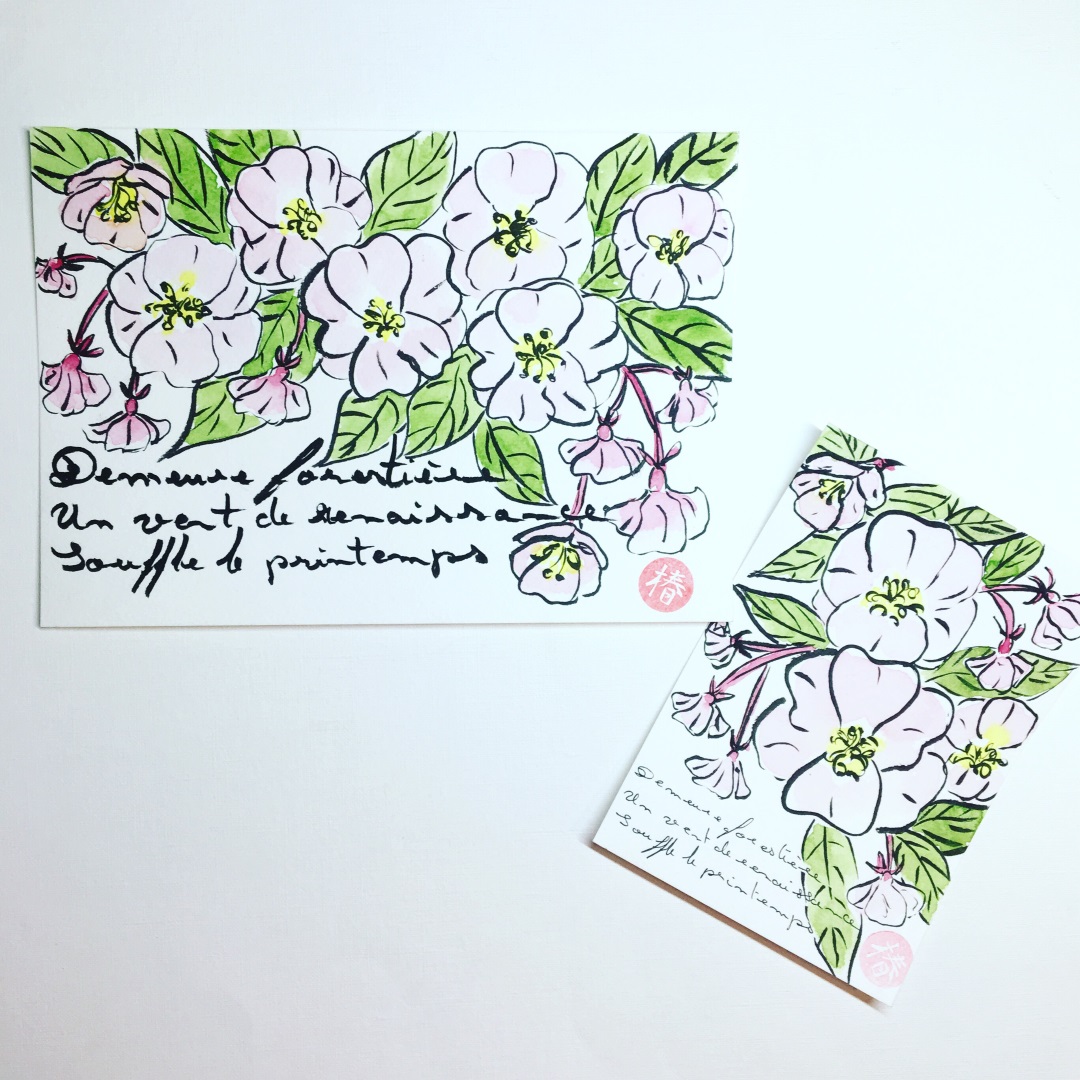 Demeure forestière
Un vent de renaissance
Souffle le printemps
椿
Demeure forestière
Un vent de renaissance
Souffle le printemps
椿